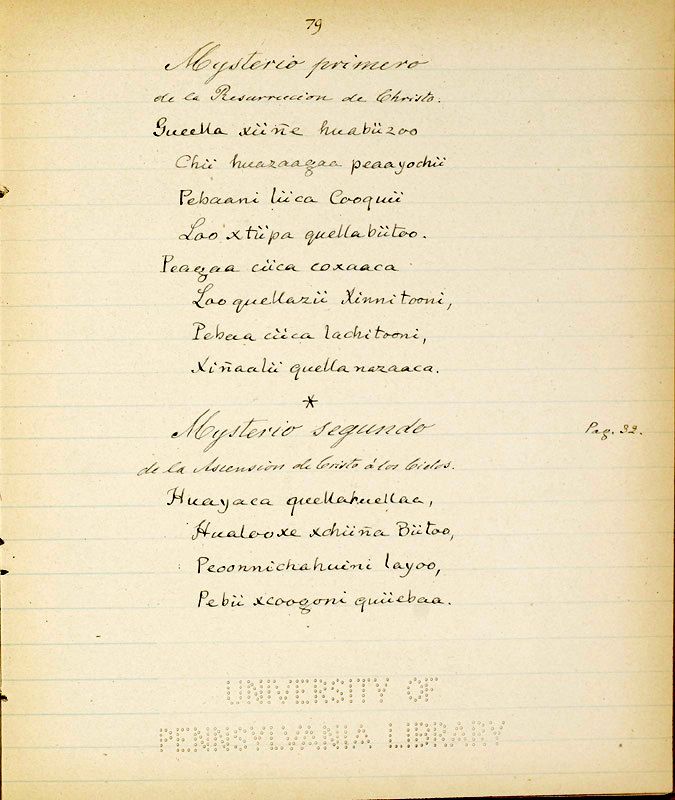 79
Mysterio primero
de la Resurreccion de Christo.
Gueella xiiñe huabiizoo
Chii huazaagaa peaayochii
Pebaani liica Cooquii
Lao xtiipa quellabiitoo.
Peagaa ciica coxaaca
Lao quellazii Xinnitooni,
Pebaa ciica lachitooni,
Xiñaalii quellanazaaca.
*
Mysterio segundo
Pag. 32.
de la Ascension de Cristo á los Cielos.
Huayaca quellahuellaa,
Hualooxe xchiiña Biitoo,
Peoonnichahuini layoo,
Pebii xcoogoni quiiebaa.
UNIVERSITY OF
PENNSYLVANIA LIBRARY